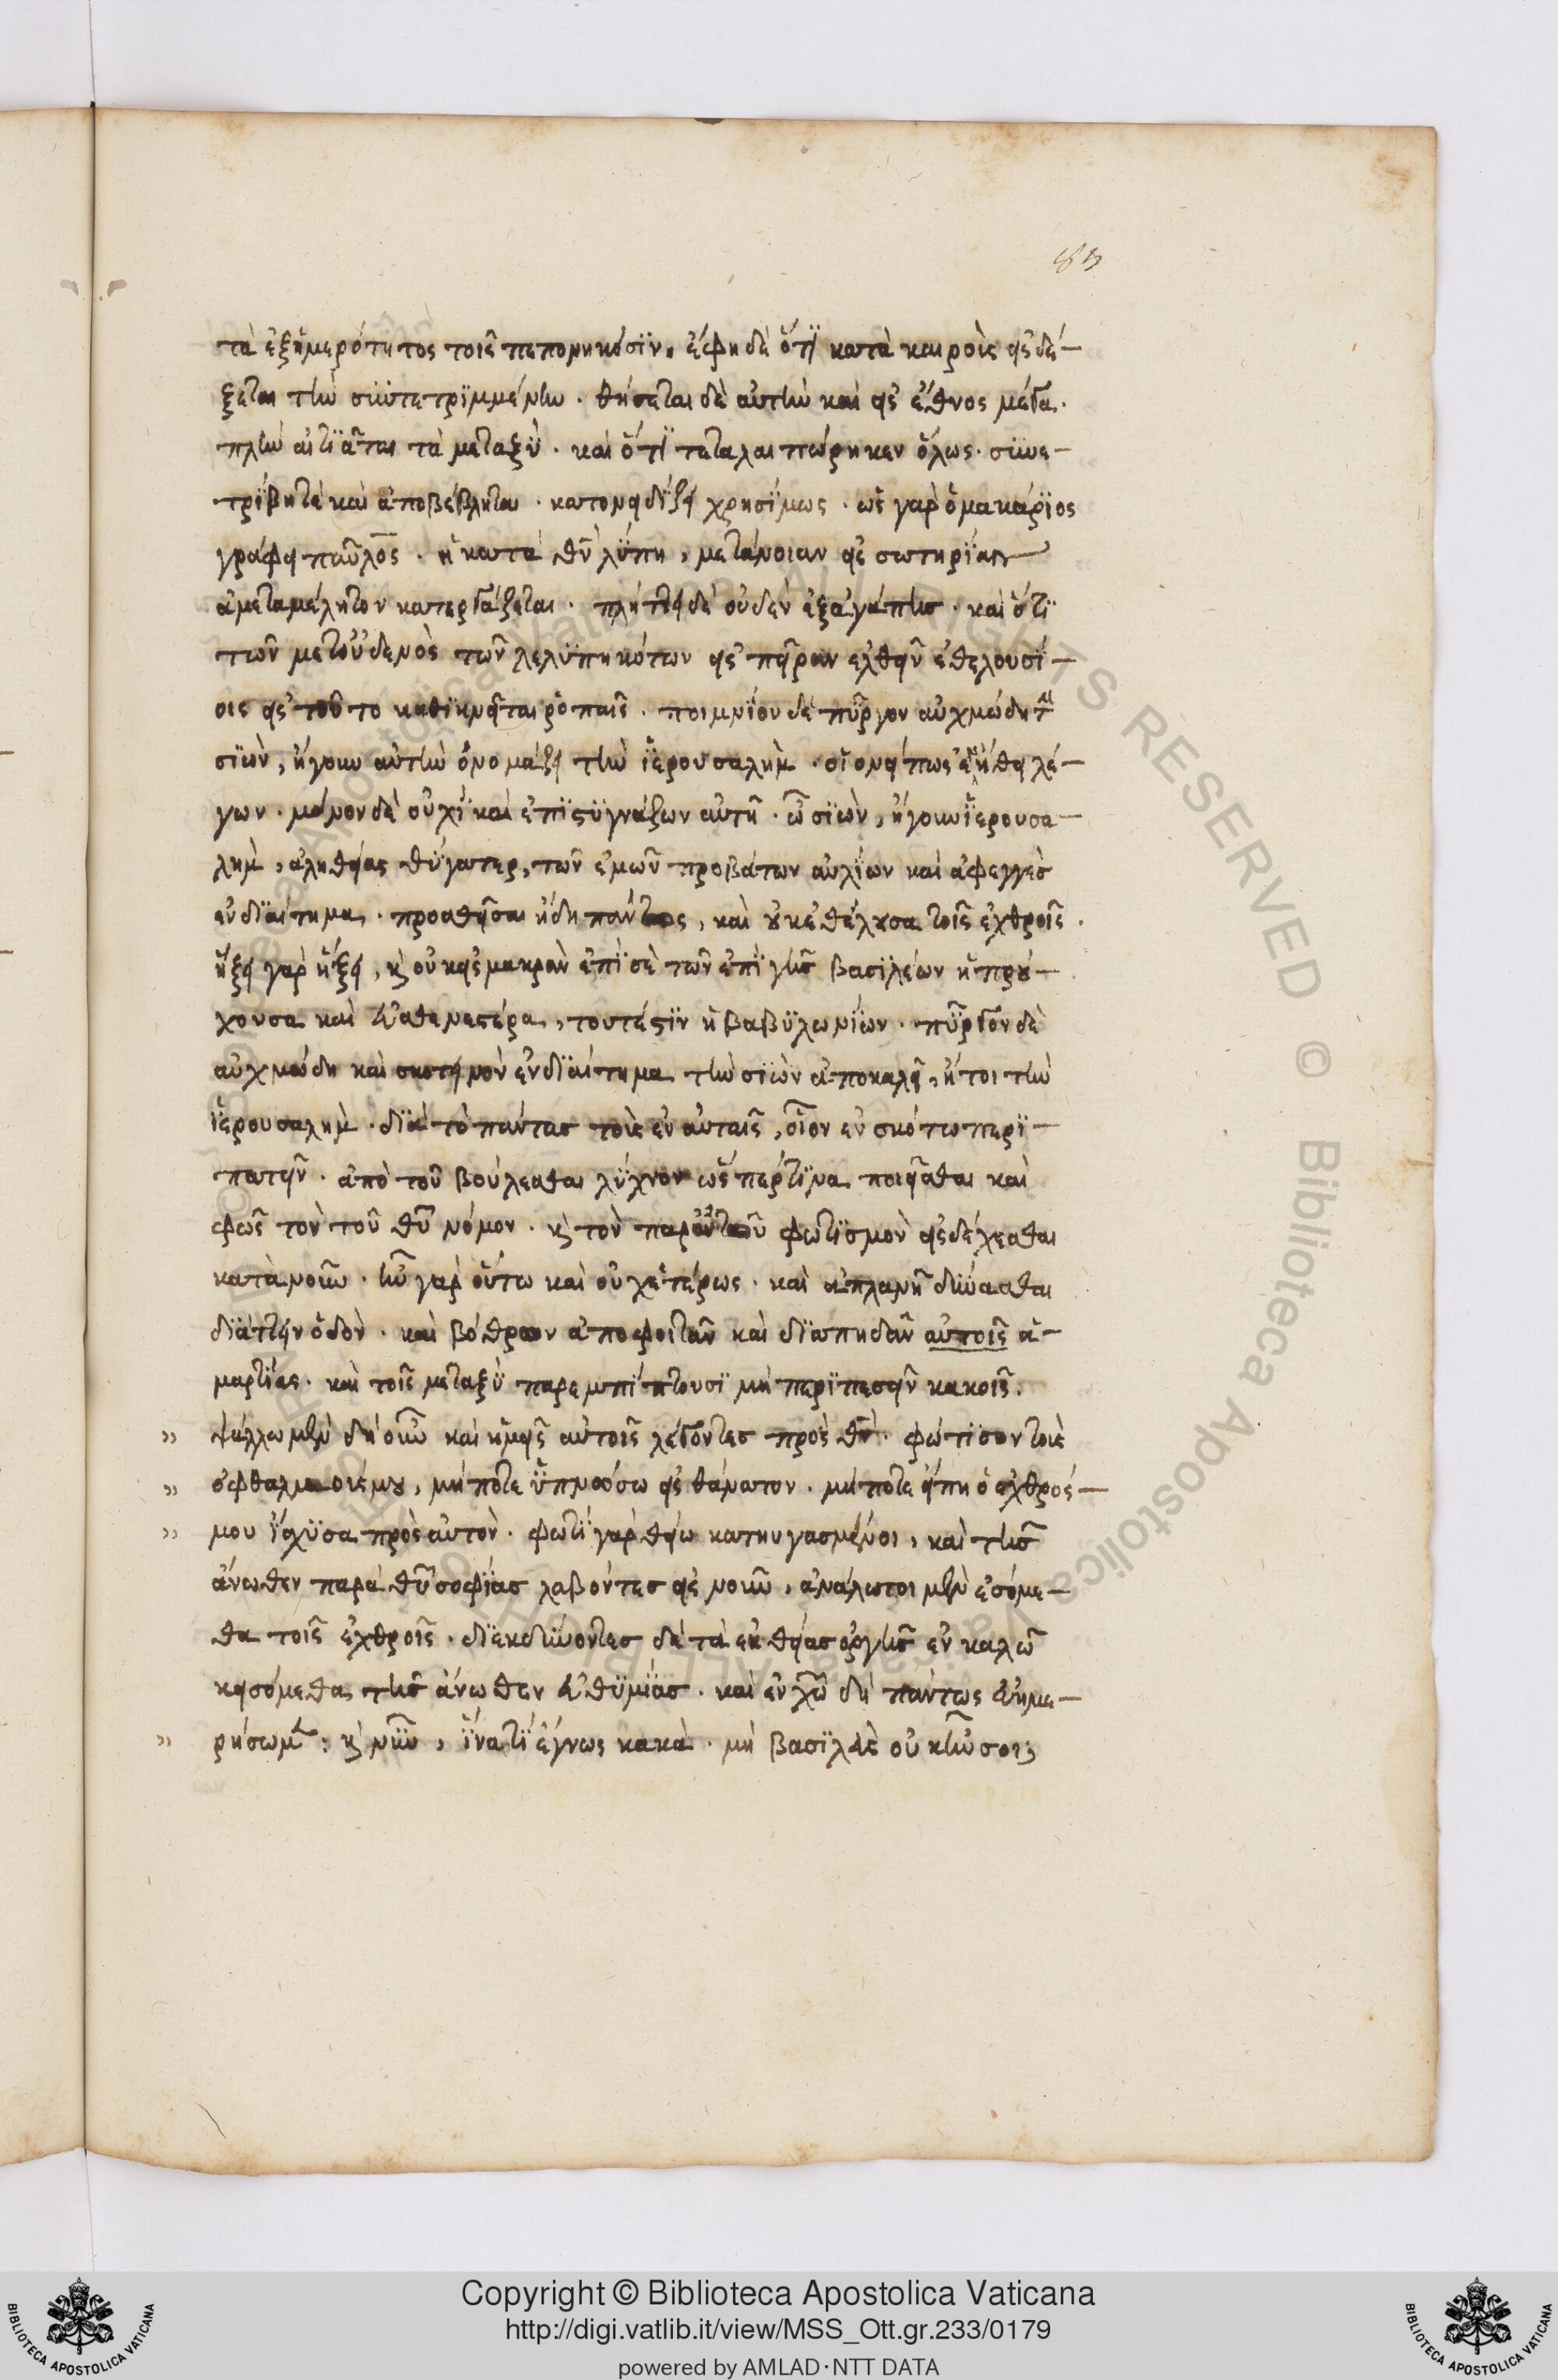 83
τὰ ἐξ ἡμερότητος τοῖς πεπονηκόσϊν. ἔφη δὲ ὅτϊ κατὰ καιροὺς εἰσδέ-
ξεται τὴν συντετρϊμμένην. θήσεται δὲ αὐτὴν καὶ εἰς ἔθνος μέγα.
πλὴν αἰτϊᾶται τὰ μεταξὺ. καὶ ὅτϊ τεταλαιπώρηκεν ὅλως. συνε-
τρίβη τὲ καὶ ἀποβέβληται. κατονειδίζει χρησίμως. ὡς γὰρ ὁ μακάρϊος
γράφει παῦλος. ἡ κατὰ θν λύπη, μετάνοιαν εἰς σωτηρϊαν
ἀμεταμέλητον κατεργάζεται. πλήττει δὲ οὐδὲν ἐξ ἀγάπης. καὶ ὅτϊ
τῶν μετ οὐδενὸς τῶν λελϋπηκότων εἰς πεῖραν ἐλθεῖν ἐθέλουσί-
οις εἰς τοῦτο καθϊκνεῖται ῥοπαῖς. ποιμνίου δὲ πύργον αὐχμώδη τὴν
σϊὼν, ἤγουν αὐτὴν ὀνομάζει τὴν ϊερουσαλὴμ. οἱονείπως ἐπήθει λέ-
γων. μόνον δὲ οὐχὶ καὶ ἐπϊστϋγνάζων αὐτῆ. ὦ σϊὼν, ἤγουν ϊερουσα-
λὴμ, ἀληθείας θύγατερ, τῶν ἐμῶν προβάτων αὐλίων καὶ ἀφεγγὲς
ἐνδϊαίτημα. προσθῆσαι ἤδη πάντως, καὶ οὐκ ἐθέλουσα τοῖς ἐχθροῖς.
ἥξει γὰρ ἥξει, κ οὐκ εἰς μακρὰν ἐπϊ σὲ τῶν ἐπϊ γῆς βασιλέων ἡ πρού-
χουσα καὶ εὐσθενεστέρα, τουτέστϊν ἡ βαβϋλωνίων. πύργον δὲ
αὐχμώδη καὶ σκοτεινὸν ἐνδϊαίτημα τὴν σϊὼν ἀποκαλεῖ, ἤτοι τὴν
ϊερουσαλὴμ. δϊὰ τὸ πάντας τοὺς ἐν αὐταῖς, οἷον ἐν σκότω περϊ-
πατεῖν. ἀπὸ τοῦ βούλεσθαι λύχνον ὥσπερ τϊνα ποιεῖσθαι καὶ
φῶς τὸν τοῦ θυ νόμον. κ τὸν παρ αὐτοῦ φωτϊσμὸν εἰσδέχεσθαι
κατὰ νοῦν. ἦν γὰρ οὕτω καὶ οὐχ ἑτέρως. καὶ ἀπλανῆ δύνασθαι
δϊάττειν ὁδὸν. καὶ βόθρων ἀποφοιτᾶν καὶ δϊαπηδᾶν αὐτοῖς ἁ-
μαρτίας. καὶ τοῖς μεταξὺ παρεμπίπτουσϊ μὴ περϊπεσεῖν κακοῖς.
ψάλλωμεν δὴ οὖν καὶ ἡμεῖς αὐτοῖς λέγοντες πρὸς θν. φώτϊσον τοὺς
ὀφθαλμούς μου, μήποτε ὑπνώσω εἰς θάνατον. μήποτε εἴπη ὁ ἐχθρός-
μου ἴσχϋσα πρὸς αὐτὸν. φωτί γὰρ θείω κατηυγασμένοι, καὶ τῆς
ἄνωθεν παρὰ θυ σοφίας λαβόντες εἰς νοῦν, ἀνάλωτοι μὲν ἐσόμε-
θα τοῖς ἐχθροῖς. δϊεκδύνοντες δὲ τὰ ἐκ θείας ὀργῆς ἐν καλῶ
κεισόμεθα τῆς ἄνωθεν εὐθϋμίας. καὶ ἐν χω δὴ πάντως εὐημε-
ρήσωμεν: κ νῦν, ἵνατϊ ἔγνως κακὰ. μὴ βασϊλεὺς οὐκ ἦν σοι;
Copyright © Biblioteca Apostolica Vaticana
http://digi.vatlib.it/view/MSS_Ott.gr.233/0179
powered by AMLAD·NTT DATA